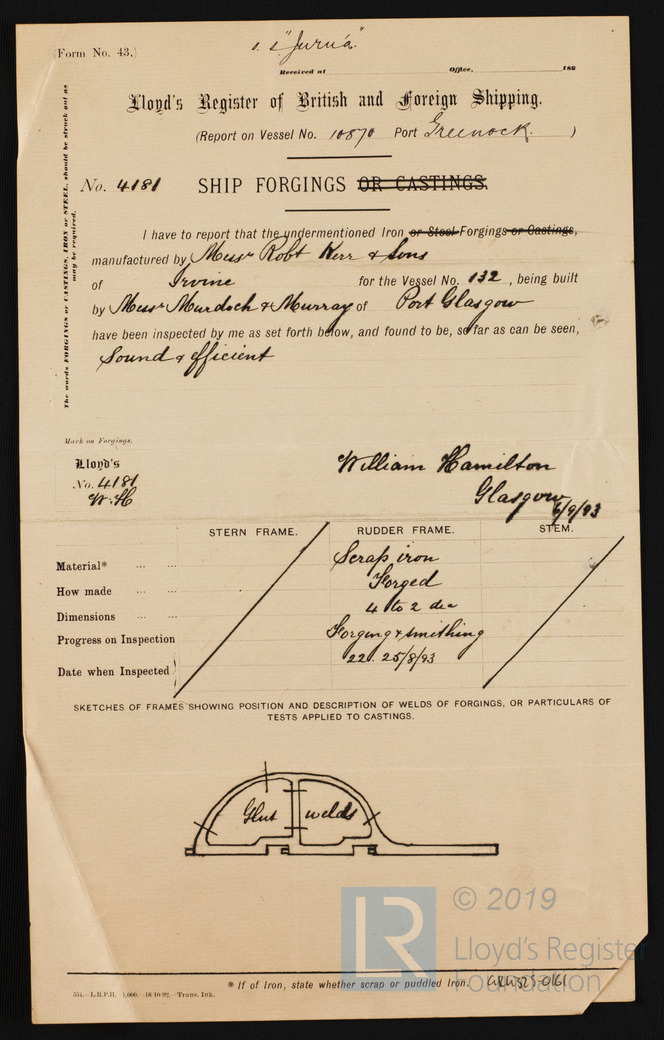 (Form No. 43.)
s.s "Juruá"
Received at Office, 189
Lloyd's Register of British and Foreign Shipping.
(Report on Vessel No. 10870 Port Greenock. )
The words FORGINGS or CASTINGS, IRON or STEEL, should be struck out as may be required.
No. 4181 SHIP FORGINGS OR CASTINGS.
I have to report that the undermentioned Iron or Steel Forgings or Castings,
manufactured by Messrs Robt Kerr & Sons
of Irvine for the Vessel No. 132, being built
by Messrs Murdoch & Murray of Port Glasgow
have been inspected by me as set forth below, and found to be, so far as can be seen,
Sound & efficient
Mark on Forgings.
Lloyd's
No. 4181
W.H
William Hamilton
Glasgow
6/9/93
STERN FRAME. RUDDER FRAME. STEM.
Material* ... ... Scrap iron
How made ... ... Forged
Dimensions ... ... 4 to 2 dia
Progress on Inspection Forging & smithing
Date when Inspected 22. 25/8/93
SKETCHES OF FRAMES SHOWING POSITION AND DESCRIPTION OF WELDS OF FORGINGS, OR PARTICULARS OF
TESTS APPLIED TO CASTINGS.
Glut welds
LR
© 2019
Lloyd's Register
Foundation
* If of Iron, state whether scrap or puddled Iron.
534.—L.R.P.H. 1,000.—18/10/92.—Trans. Ink.